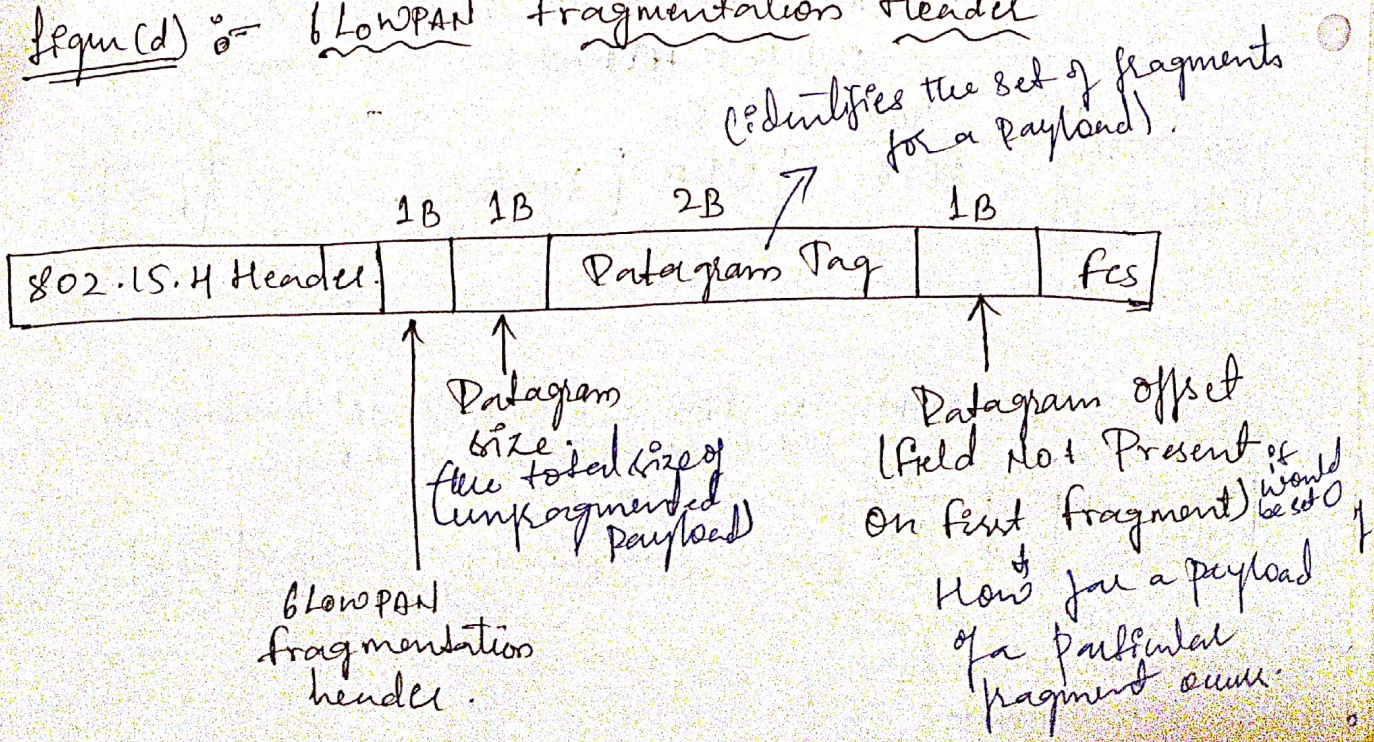 figure (d) :- 6LoWPAN fragmentation Header
(identifies the set of fragments
for a payload).
1B 1B 2B 1B
802.15.4 Header Datagram Tag fcs
Datagram
size.
the total size of
(unfragmented
payload)
6LoWPAN
fragmentation
header.
Datagram offset
(field Not Present
on first fragment)
it would
be set 0
How far a payload
of a particular
fragment occur.